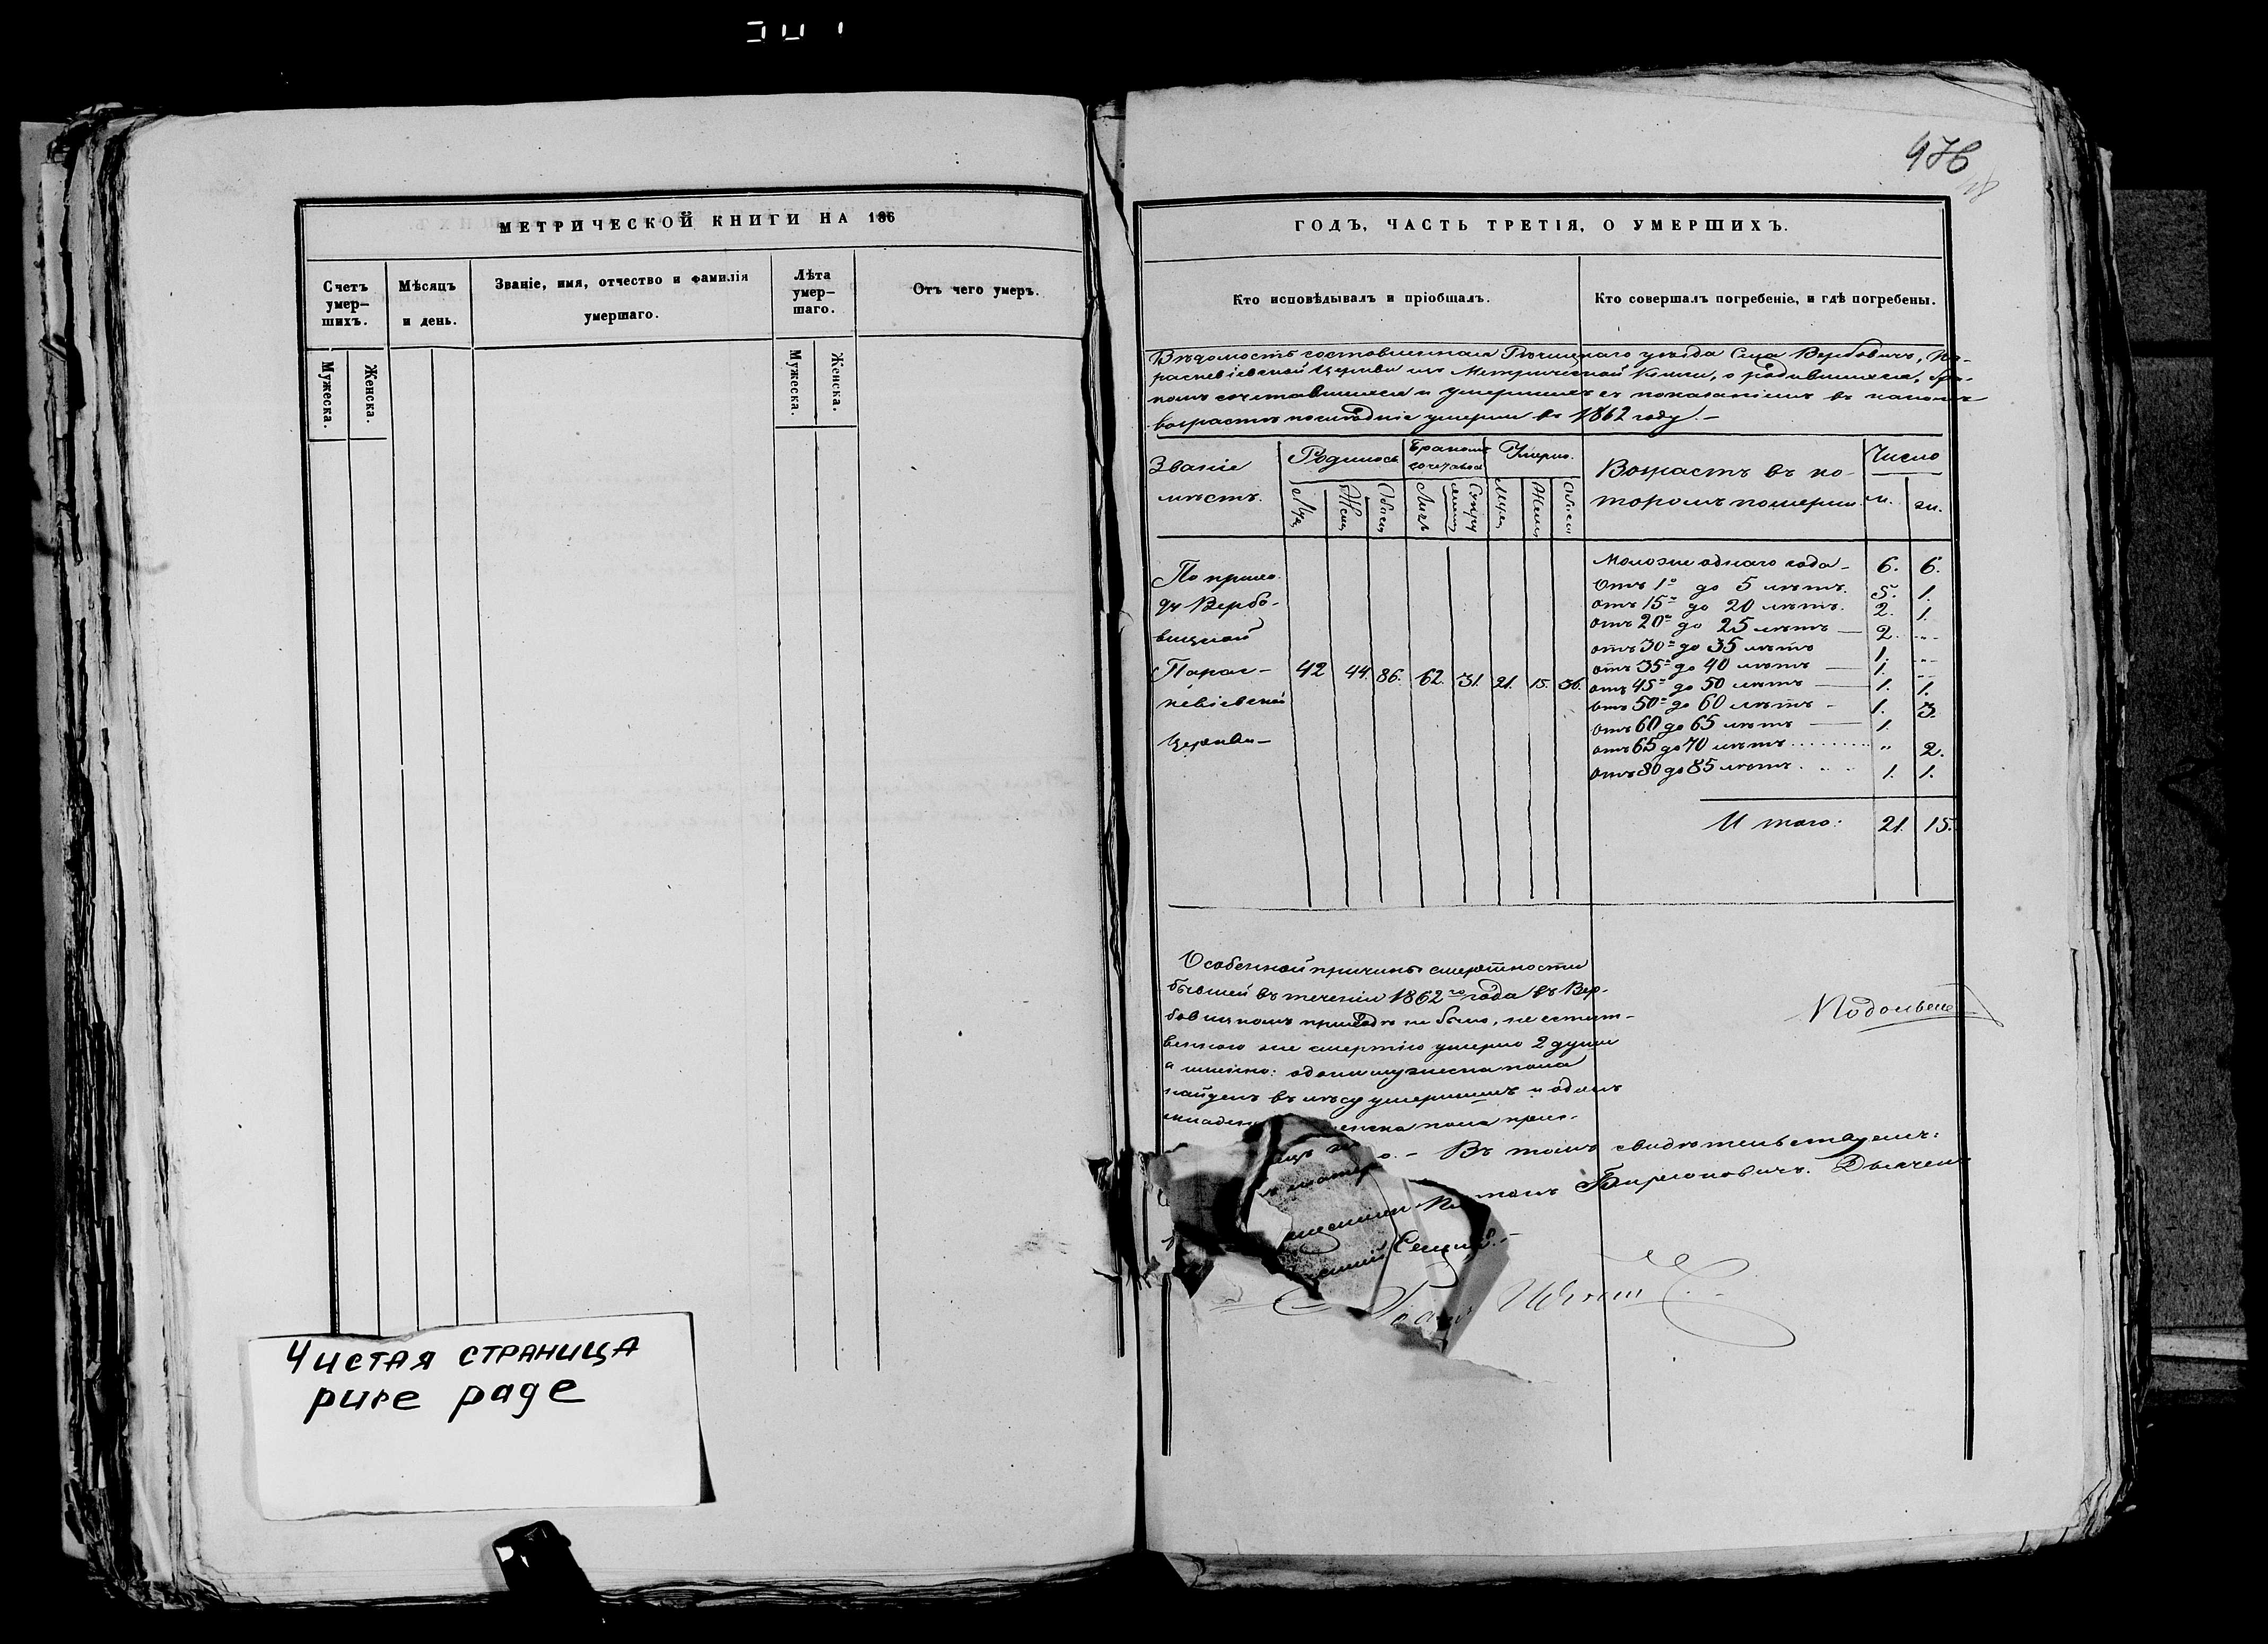 476
МЕТРИЧЕСКОЙ КНИГИ НА 186
Счетъ умер-
шихъ.
Мѣсяцъ
и день.
Званіе, имя, отчество и фамилія
умершаго.
Лѣта
умер-
шаго.
Отъ чего умеръ.
Мужеска.
Женска.
Мужеска.
Женска.
Чистая страница
pure page
ГОДЪ, ЧАСТЬ ТРЕТІЯ, О УМЕРШИХЪ.
Кто исповѣдывалъ и пріобщалъ.
Кто совершалъ погребеніе, и гдѣ погребены.
Вѣдомость составленная Рѣчицкаго уѣзда Села Вербовичъ, Па-
раскевіевской Церкви изъ Метрической Книги, о родившихся, бра-
комъ сочетавшихся и умершихъ съ показаніемъ въ какомъ
возрастѣ послѣдніе умерли въ 1862 году. –
Званіе
мѣстъ.
Родилось
Бракомъ
сочеталось
Умерло.
Возрастъ въ ко-
торомъ померли.
Число
м.
ж.
По прихо-
ду Вербо-
вицкой
Парас-
кевіевской
Церкви –
42
44.
86.
62.
31.
21.
15.
36.
Моложе однаго года – 6. 6.
Отъ 1º до 5 лѣтъ. 5. 1.
отъ 15º до 20 лѣтъ. 2. 1.
отъ 20º до 25 лѣтъ – 2. ...
отъ 30º до 35 лѣтъ 1. ...
отъ 35º до 40 лѣтъ – 1. ...
отъ 45º до 50 лѣтъ – 1. 1.
отъ 50º до 60 лѣтъ – 1. 3.
отъ 60 до 65 лѣтъ – 1.
отъ 65 до 70 лѣтъ ........ „ 2.
отъ 80 до 85 лѣтъ. ... 1. 1.
Итого: 21. 15.
Особенной причины смертности
бывшей въ теченіи 1862го года въ Вер-
бовицкомъ приходѣ не было, не естест-
венною же смертію умерло 2 души
а именно: одинъ мужеска пола
найденъ въ лѣсу умершимъ и одинъ
младен женска пола
Въ томъ свидѣтельствуемъ: